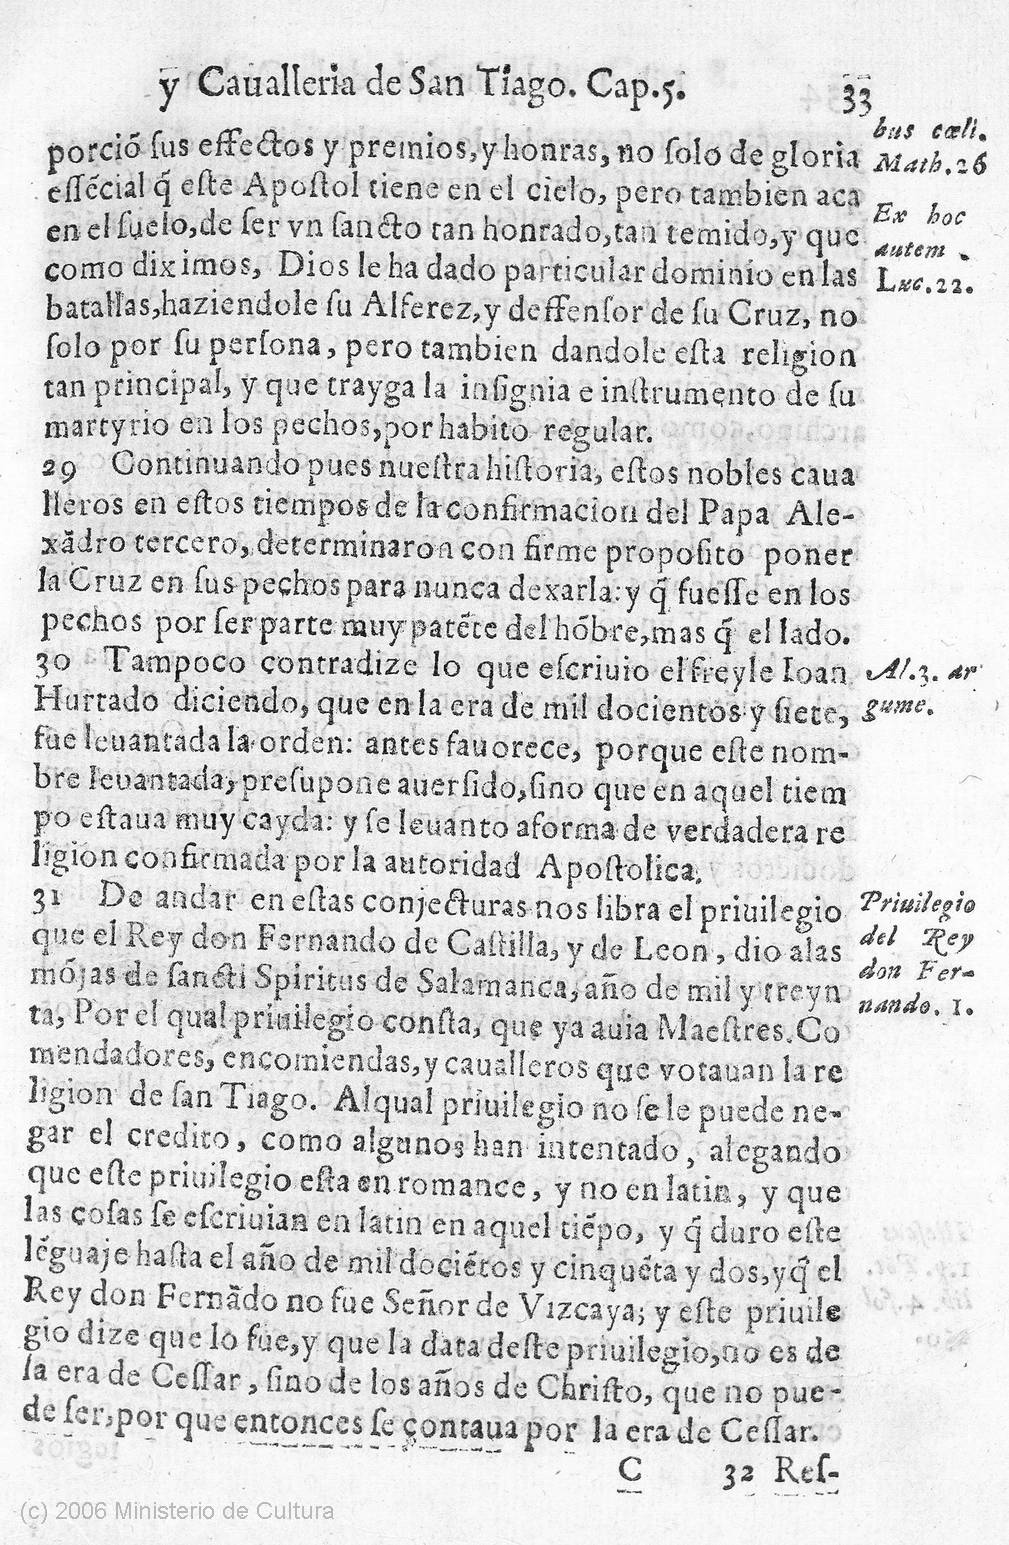 y Caualleria de San Tiago. Cap.5. 33
porciõ ſus effectos y premios, y honras, no ſolo de gloria
eſſẽcial q̃ eſte Apoſtol tiene en el cielo, pero tambien aca
en el ſuelo, de ſer vn ſancto tan honrado, tan temido, y que
como diximos, Dios le ha dado particular dominio en las
batallas, haziendole ſu Alferez, y deffenſor de ſu Cruz, no
ſolo por ſu perſona, pero tambien dandole eſta religion
tan principal, y que trayga la inſignia e inſtrumento de ſu
martyrio en los pechos, por habito regular.
29 Continuando pues nueſtra hiſtoria, eſtos nobles caua
lleros en eſtos tiempos de la confirmacion del Papa Ale-
xãdro tercero, determinaron con firme propoſito poner
la Cruz en ſus pechos para nunca dexarla: y q̃ fueſſe en los
pechos por ſer parte muy patẽte del hõbre, mas q̃ el lado.
30 Tampoco contradize lo que eſcriuio el freyle Ioan
Hurtado diciendo, que en la era de mil docientos y ſiete,
fue leuantada la orden: antes fauorece, porque eſte nom-
bre leuantada, preſupone auer ſido, ſino que en aquel tiem
po eſtaua muy cayda: y ſe leuanto a forma de verdadera re
ligion confirmada por la autoridad Apoſtolica.
31 De andar en eſtas conjecturas nos libra el priuilegio
que el Rey don Fernando de Caſtilla, y de Leon, dio alas
mõjas de ſancti Spiritus de Salamanca, año de mil y treyn
ta, Por el qual priuilegio conſta, que ya auia Maeſtres. Co
mendadores, encomiendas, y caualleros que votauan la re
ligion de ſan Tiago. Al qual priuilegio no ſe le puede ne-
gar el credito, como algunos han intentado, alegando
que eſte priuilegio eſta en romance, y no en latin, y que
las coſas ſe eſcriuian en latin en aquel tiẽpo, y q̃ duro eſte
lẽguaje haſta el año de mil dociẽtos y cinquẽta y dos, y q̃ el
Rey don Fernãdo no fue Señor de Vizcaya; y eſte priuile
gio dize que lo fue, y que la data deſte priuilegio, no es de
la era de Ceſſar, ſino de los años de Chriſto, que no pue-
de ſer, por que entonces ſe contaua por la era de Ceſſar.
C 32 Reſ-
bus cœli.
Math. 26
Ex hoc
autem.
Luc. 22.
Al. 3. ar
gume.
Priuilegio
del Rey
don Fer-
nando. 1.
(c) 2006 Ministerio de Cultura